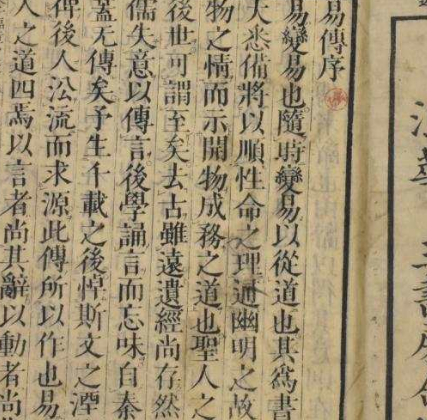 易傳序
易變易也隨時變易以從道也其爲書
大悉備將以順性命之理通幽明之故
物之情而示開物成務之道也聖人之
後世可謂至矣去古雖遠遺經尚存然
儒失意以傳言後學誦言而忘味自秦
蓋无傳矣予生千載之後悼斯文之湮
俾後人㳂流而求源此傳所以作也易
人之道四焉以言者尚其辭以動者尚